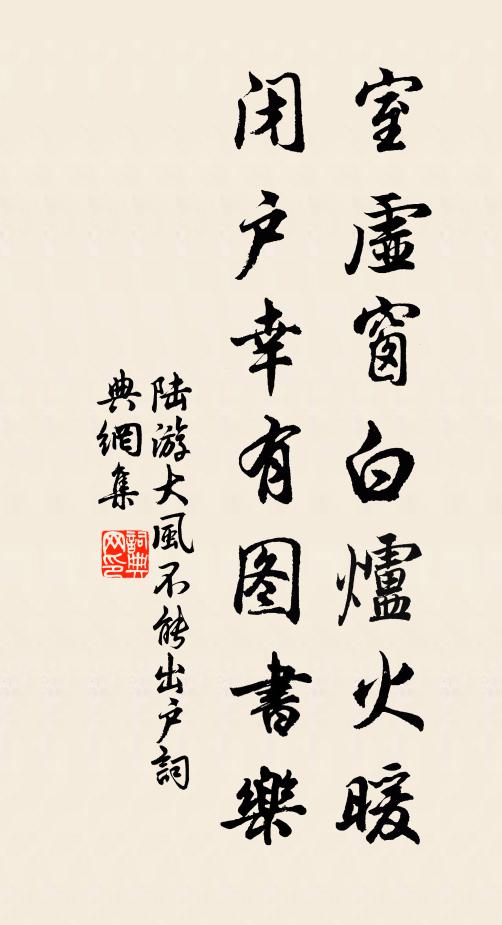 室虛窗白爐火暖
闭户幸有图書樂
陆游大風不能出户詞
典網集
詞典
网印